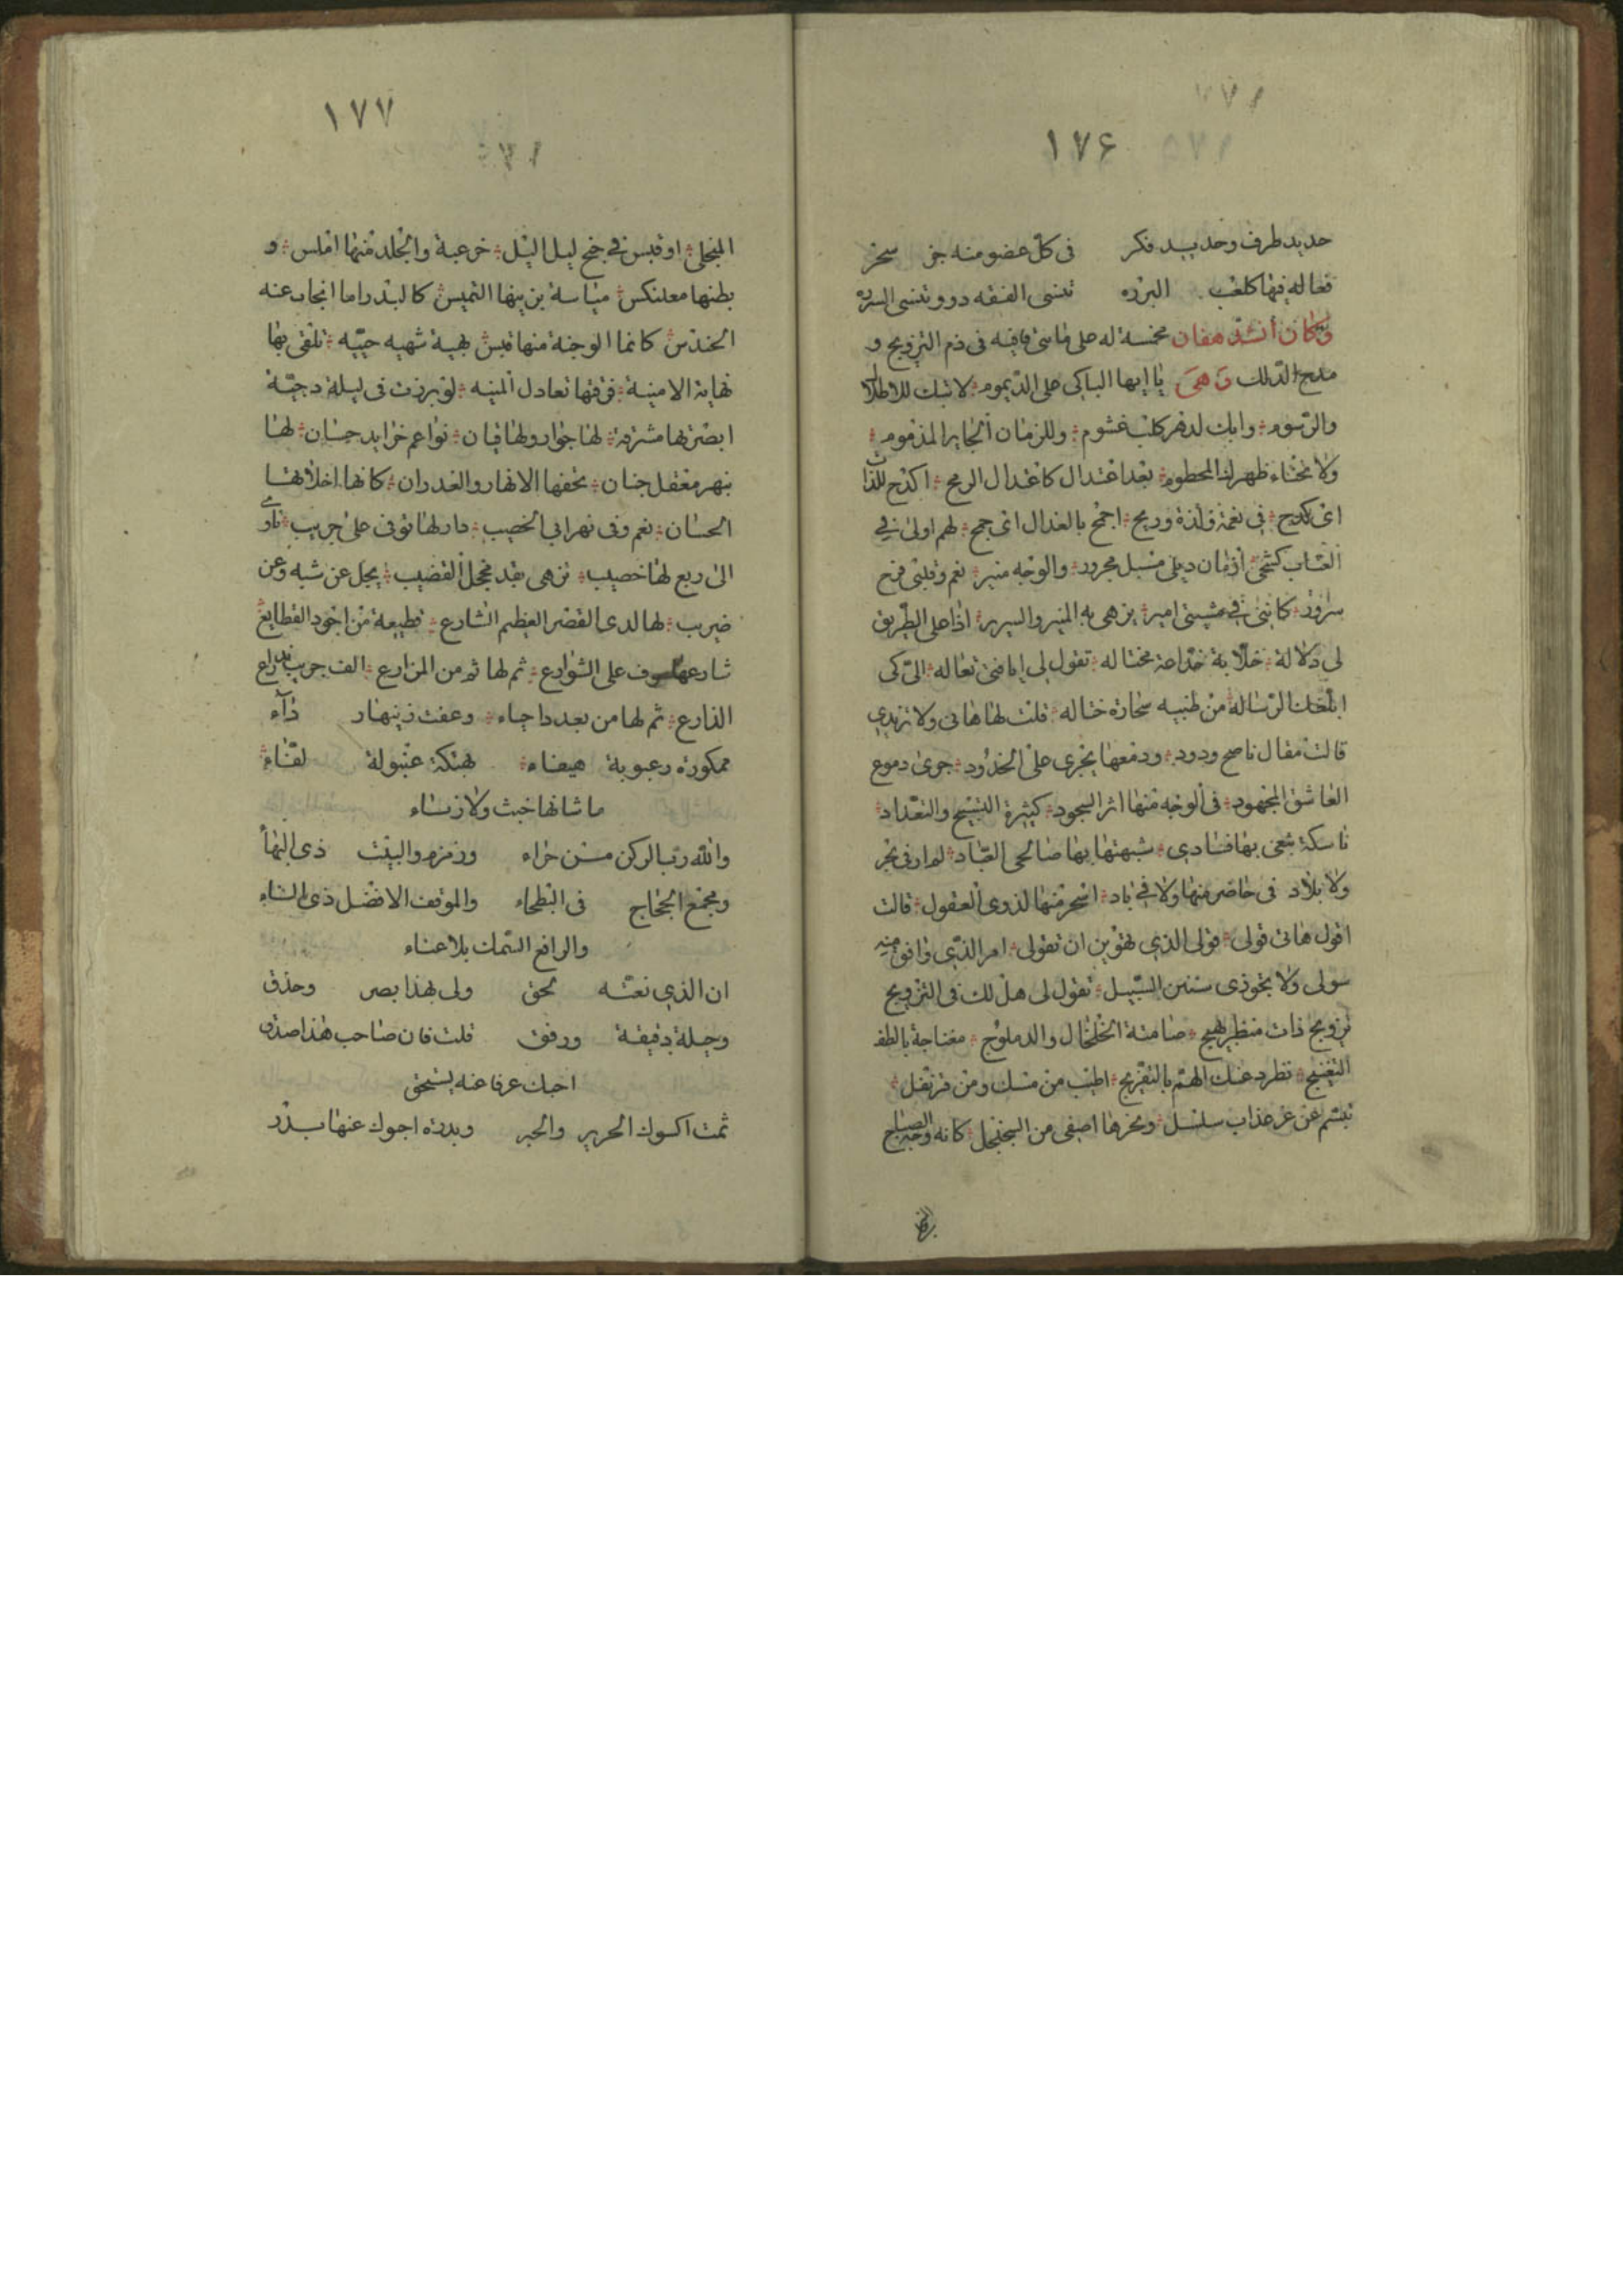 ١٧۶
حديد طرف وحديد فكر في كل عضو منه جن سحر
فعاله فيها كلعب البزده تنسى الفقه دو وتنسى السرده
وكان أنشد هفان مخمسة له على ماسى قافيه فى ذم التزويج و
مدح الدلك وهى يا ايها الباكى على الديموم لا تبك للاطلال
والرسوم وابك لدهر كلب غشوم وللزمان الجاير المذموم
ولانحناء ظهرك المحطوم بعد اعتدال كاعتدال الرمح اكدح للذات
اى كدح فى نعمة ولذة وربح اجمح بالعذال اى جمح لهم اولى فى
العتاب كشحى ازمان ذيلى مسبل مجرور والوجه منير نعم وقلبى فرح
سرور كاننى فى مشيتى امير يزهى به المنبر والسرير اذا على الطريق
لى دلالة خلابة خداعة محتاله تقول لى ايا فتى تعاله الى كى
ابلغك الرساله من ظبيه سحارة ختاله قلت لها هاتى ولا تزيدى
قالت مقال ناصح ودود ودمعها يجرى على الخدود جرى دموع
العاشق المجهود فى الوجه منها اثر السجود كثيرة التسبيح والتعداد
ناسكة تبغى بها فسادى شبهتها بها صالحى العباد لم ار فى بحر
ولا بلاد فى حاضر منها ولا فى باد اسحر منها لذوى العقول قالت
اقول هاتى قولى قولى الذى تهوين ان تقولى امر الذى وافق منه
سولى ولا تجوزى سنن السبيل تقول لى هل لك فى التزويج
تزويج ذات منظر بهيج صامتة الخلخال والدملوج مغناجة بالطف
التغنيج تطرد عنك الهم بالتفريج اطيب من مسك ومن قرنفل
تبسم عن غر عذاب سلسل ونحرها اصفى من السجنجل كانه وجه الصباح
١٧٧
المنجلى او قبس فى جنح ليل اليل خرعبة والجلد منها املس و
بطنها معلنكس مياسة يزينها التميس كالبدر اما انجاب عنه
الحندس كانما الوجنة منها قبس بهية شهيه حييه تلقى بها
نهاية الامنية فوقها تعادل المنيه لو برزت فى ليلة دجية
ابصرتها مشرقة لها جوار ولها قيان نواعم خرايد حسان لها
بنهر معقل جنان تحفها الانهار والغدران كانها اخلاقها
الحسان نعم وفى نهر ابى الخصيب دار لها توفى على جريب تاوى
الى ربع لها خصيب تزهى بقد مخجل القضيب يجل عن شبه وعن
ضريب لها لدى القصر العظيم الشارع قطيعة من اجود القطايع
شارعها على الشوارع ثم لها ثم من المزارع الف جريب بذراع
الذارع ثم لها من بعد دا جاء وعفت زينهار ذآء
ممكورة رعبوبة هيفاء بهنكة عبولة لفاء
ما شانها خبث ولا زناء
والله رب الركن من حراء وزمزم والبيت ذى البهاء
ومجمع الحجاج فى البطحاء والموقف الافضل ذى السناء
والرافع السمك بلا عناء
ان الذى نعته لحق ولى بهذا بصر وحذق
وحيلة دقيقة ورفق قلت فان صاحب هذا صدق
احبك عرفا عنه يستحق
ثمت اكسوك الحرير والحبر وبدرة اجوك عنها ببدر